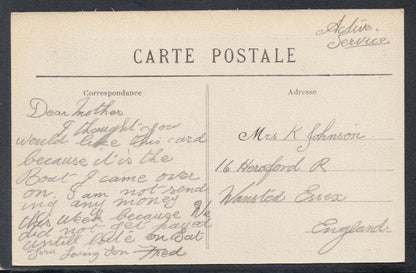 Active
Service
CARTE POSTALE
Correspondance
Adresse
Dear Mother
I thought you
would like this card
because it is the
Boat I came over
on. I am not send
ing any money
this week because We
did not get payed
untill late on Sat
Your Loving Son Fred
Mrs K Johnson
16 Hereford R
Wansted Essex
England